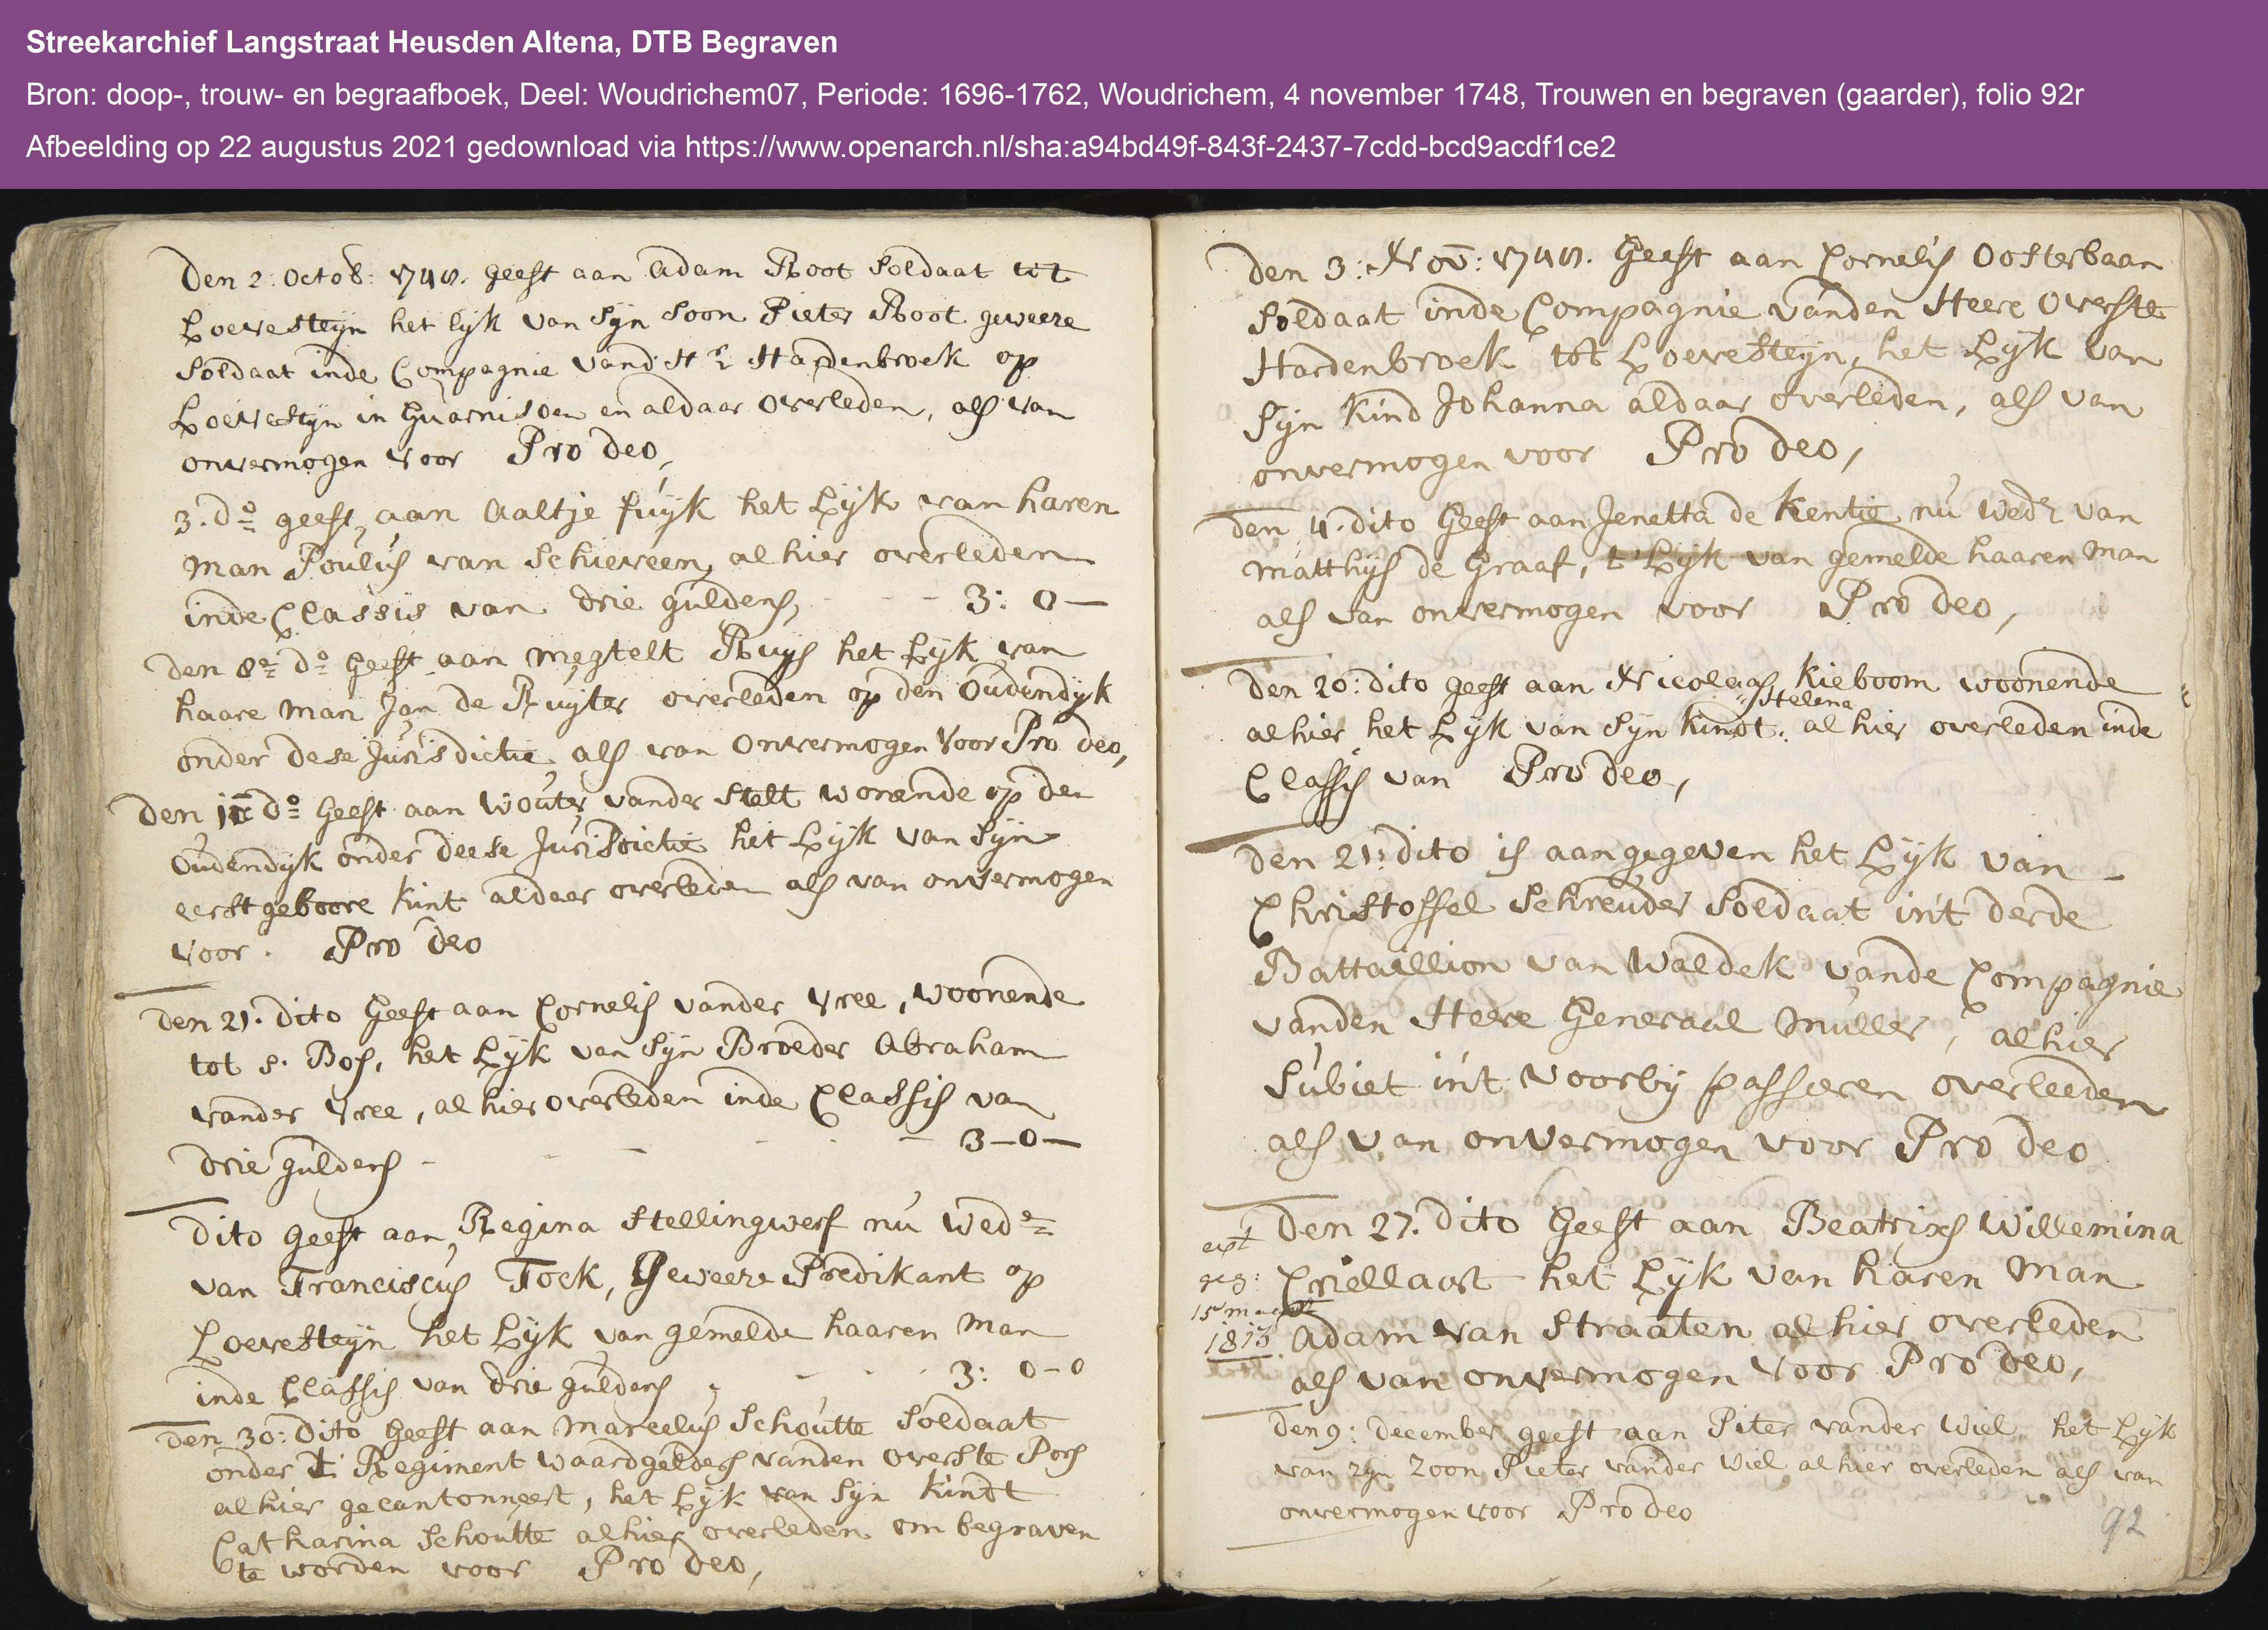 Streekarchief Langstraat Heusden Altena, DTB Begraven
Bron: doop-, trouw- en begraafboek, Deel: Woudrichem07, Periode: 1696-1762, Woudrichem, 4 november 1748, Trouwen en begraven (gaarder), folio 92r
Afbeelding op 22 augustus 2021 gedownload via https://www.openarch.nl/sha:a94bd49f-843f-2437-7cdd-bcd9acdf1ce2
Den 2: Octob: 1748. geeft aan Adam Root Soldaat tot
Loevesteijn het lijk van Sijn Soon Pieter Root geweeze
Soldaat inde Compagnie vand Hr Hardenbroek op
Loevestijn in Guarnisoen en aldaar overleden, als van
onvermogen voor Pro deo,
3. do geeft aan Aaltje fuijk het Lijk van haren
man Poulus van Schieveen, alhier overleden
inde Classis van drie guldens, - - - 3: 0 —
Den 8e do geeft aan megtelt Ruijs het Lijk van
haare man Jan de Ruijter overleden op den Oudendijk
onder dese Jurisdictie, als van onvermogen voor Pro deo,
Den do geeft aan Wouter vander Stelt wonende op den
Oudendijk onder deese Jurisdictie het Lijk van Sijn
eerstgeboore kint aldaer overleden als van onvermogen
voor. Pro deo
Den 21. dito geeft aan Cornelis vander Vree, woonende
tot s. Bos, het Lijk van Sijn Broeder Abraham
vander Vree, alhier overleden inde Classis van
drie guldens - - - - 3 – 0 —
Dito geeft aan Regina Stellingwerf nu Wede
van Franciscus Fock, Geweeze Predikant op
Loevesteijn het Lijk van gemelde haaren Man
inde Classis van drie guldens, - - 3: 0 – 0
Den 30: Dito geeft aan Marcelus Schoutte Soldaat
onder t Regiment waardgelders vanden Overste
alhier gecantonneert, het Lijk van Sijn kindt
Catharina Schoutte alhier overleden om begraven
te worden voor Pro deo,
Den 3: Nov: 1748. Geeft aan Cornelis Oosterbaan
Soldaat inde Compagnie vanden Heere Overste
Hardenbroek tot Loevesteijn, het Lijk van
Sijn kind Johanna aldaar overleden, als van
onvermogen voor Pro deo,
den 4. dito Geeft aan Jenetta de kentie nu Wedr van
Matthijs de Graaf, t Lijk van gemelde haaren Man
als van onvermogen voor Pro deo,
Den 20: dito geeft aan Nicolaas kieboom woonende
Helena
alhier het Lijk van Sijn kindt. alhier overleden inde
Classis van Pro deo,
Den 21: dito is aangegeven het Lijk van
Christoffel Schreuder Soldaat in't derde
Battaillion van Waldek vande Compagnie
vanden Heere Generaal Muller, alhier
Subiet in't voorbij passeren overleeden
als van onvermogen voor Pro deo
Den 27. dito Geeft aan Beatrixs Willemina
ext
geg: Criellaart het Lijk van haren Man
15 maart
1815 Adam van Straaten alhier overleden
als van onvermogen voor Pro deo,
Den 9: december geeft aan Piter vander Wiel het Lijk
van zijn zoon Pieter vander Wiel alhier overleden als van
onvermogen voor Pro deo
92